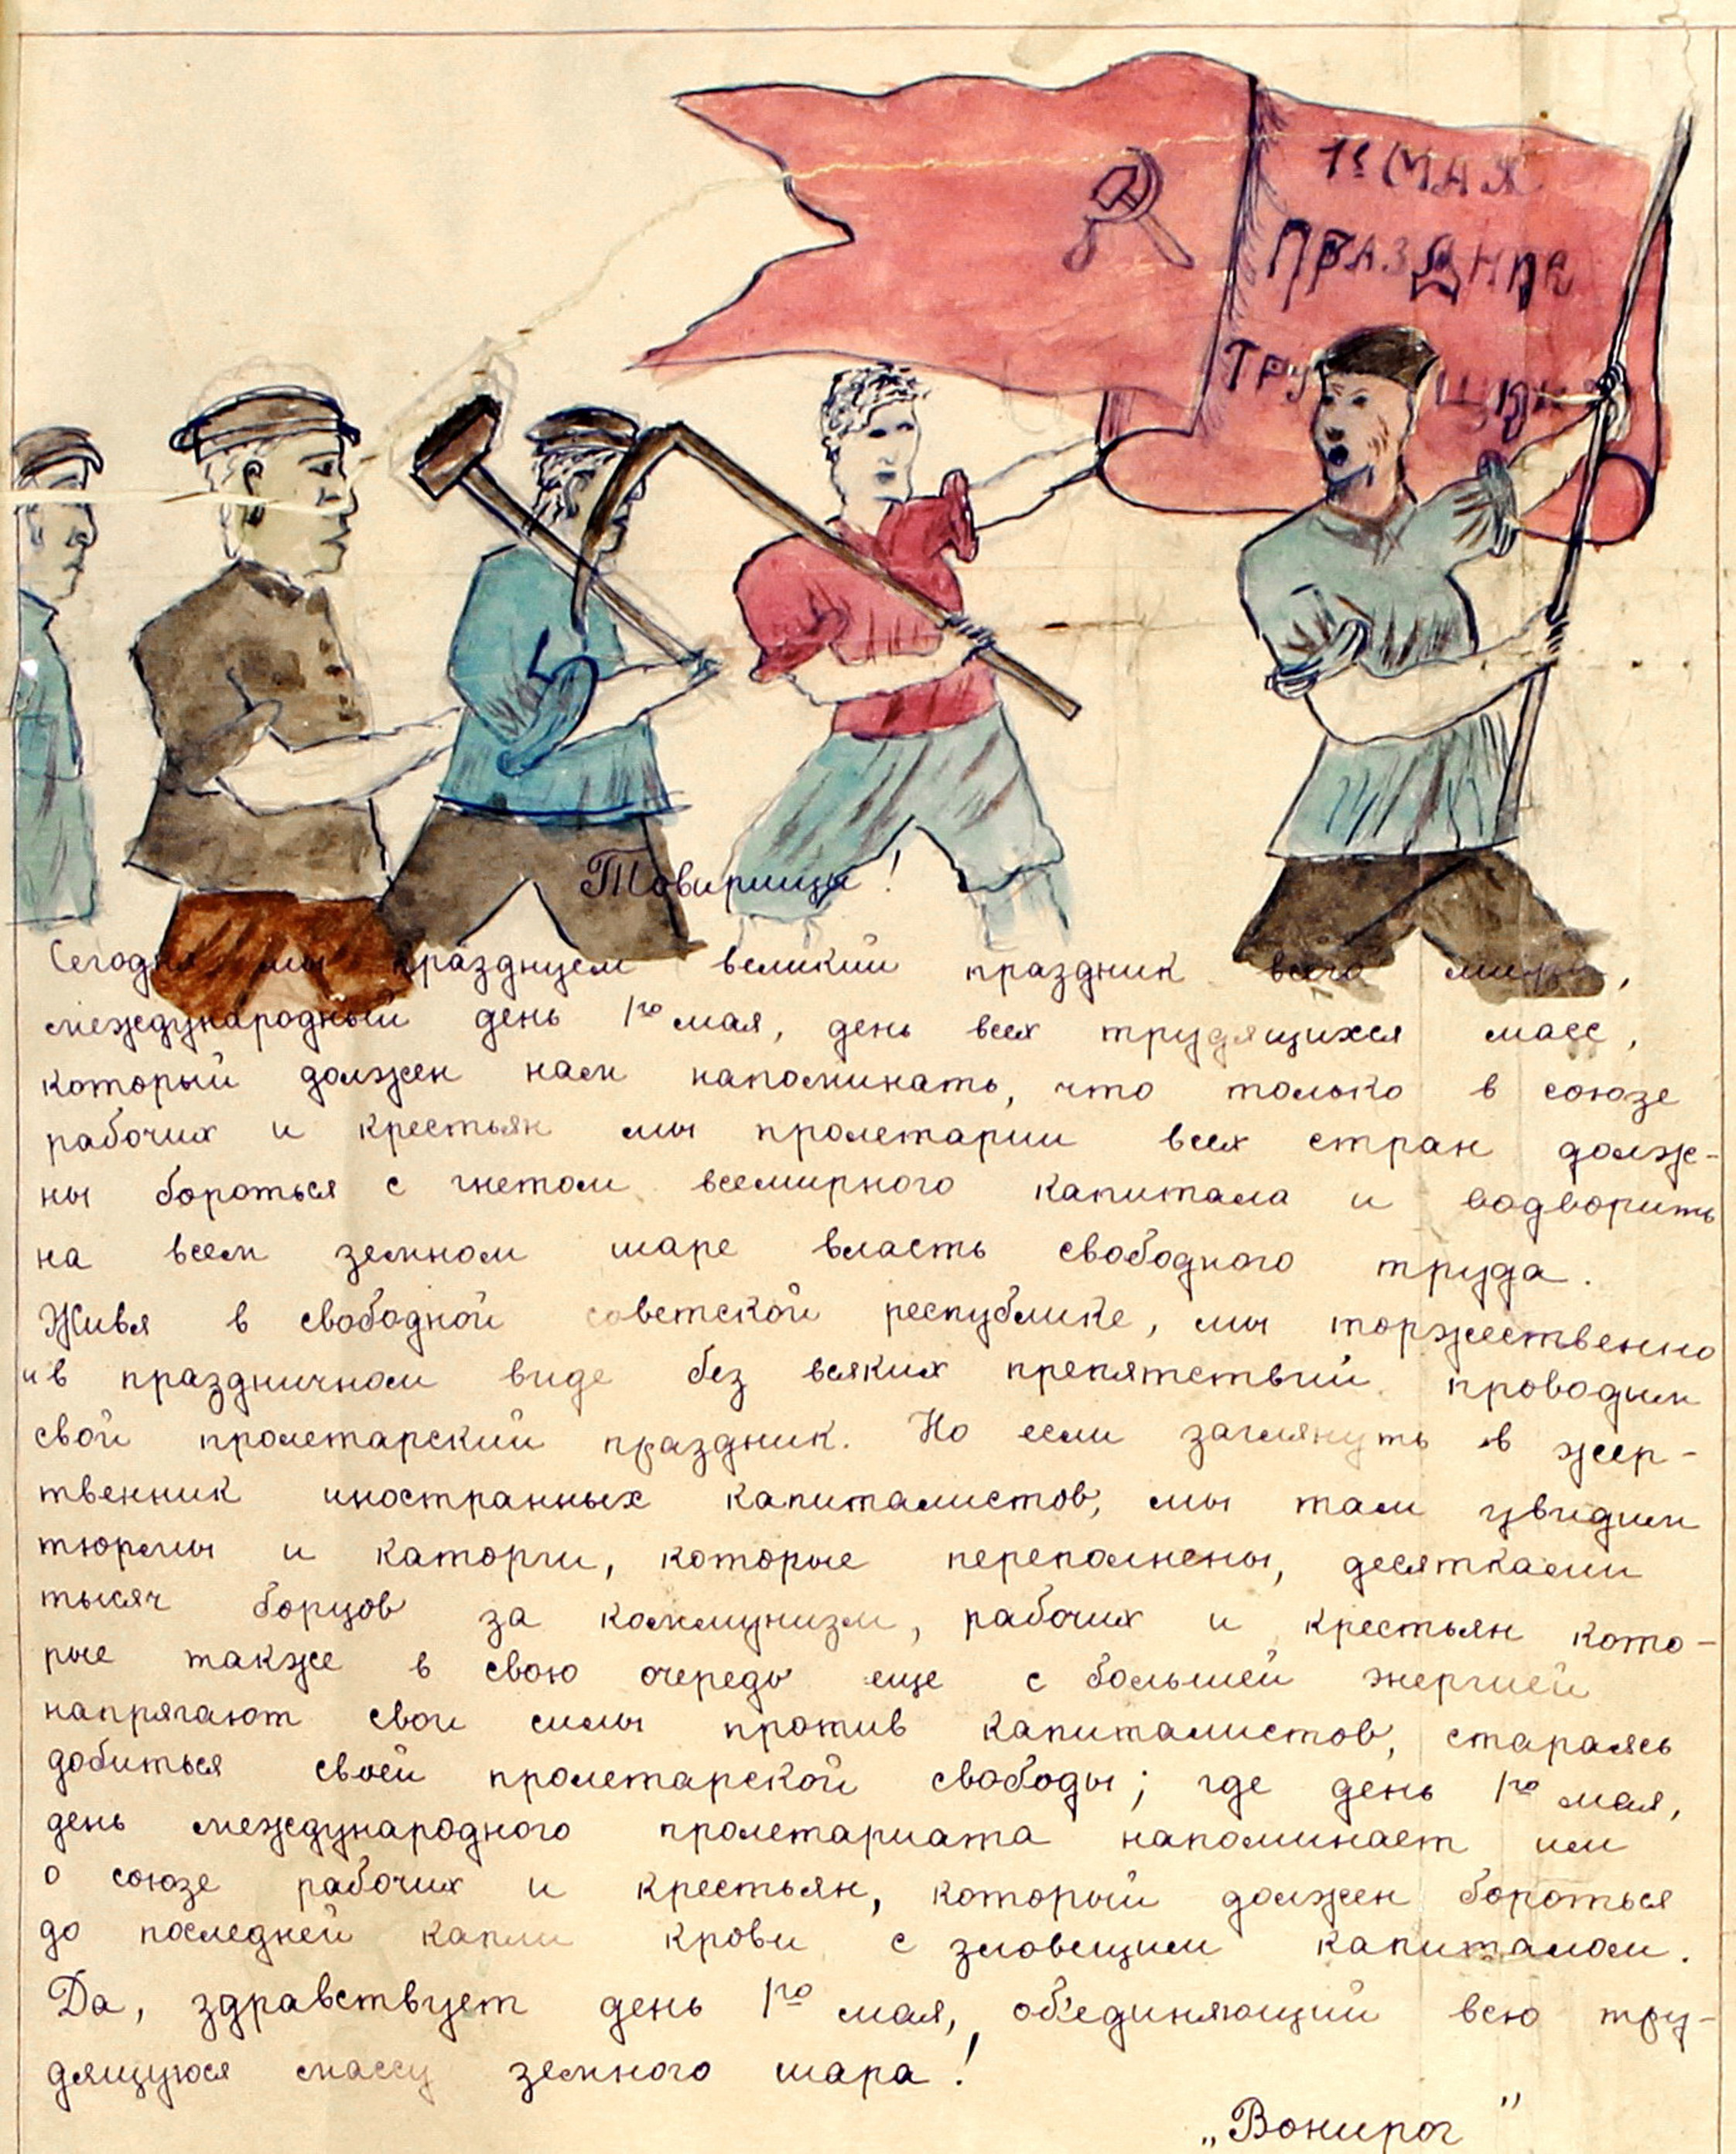 1е МАЯ
ПРАЗДНИК
ТРУ ЩИХ
Товарищи!
Сегодня мы празднуем великий праздник всего мира,
международный день 1го мая, день всех трудящихся масс,
который должен нам напоминать, что только в союзе
рабочих и крестьян мы пролетарии всех стран долж-
ны бороться с гнетом всемирного капитала и водворить
на всем земном шаре власть свободного труда.
Живя в свободной советской республике, мы торжественно
и в праздничном виде без всяких препятствий проводим
свой пролетарский праздник. Но если заглянуть в жер-
твенник иностранных капиталистов, мы там увидим
тюрмы и каторги, которые переполнены, десятками
тысяч борцов за коммунизм, рабочих и крестьян кото-
рые также в свою очередь еще с большей энергией
напрягают свои силы против капиталистов, стараясь
добиться своей пролетарской свободы; где день 1го мая,
день международного пролетариата напоминает им
о союзе рабочих и крестьян, который должен бороться
до последней капли крови с зловещим капиталом.
Да, здравствует день 1го мая, об'единяющий всю тру-
дящуюся массу земного шара!
„Вонирог"